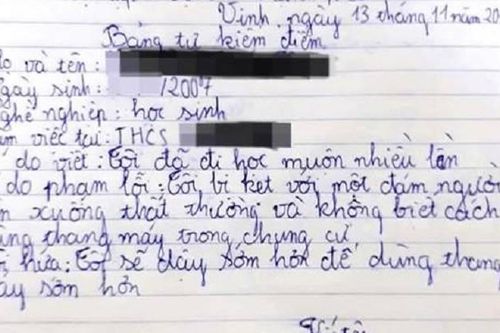 Vinh, ngày 13 tháng 11 năm 20
Bảng tự kiểm điểm
ọ và tên :
gày sinh : /2007
ghề nghiệp : học sinh
m việc tại : THCS
do viết : Tôi đã đi học muộn nhiều lần
do phạm lỗi : Tôi bị kẹt với một đám người
n xuống thất thường và không biết cách
ùng thang máy trong chung cư
hứa : Tôi sẽ dậy sớm hơn để dùng thang
áy sớm hơn